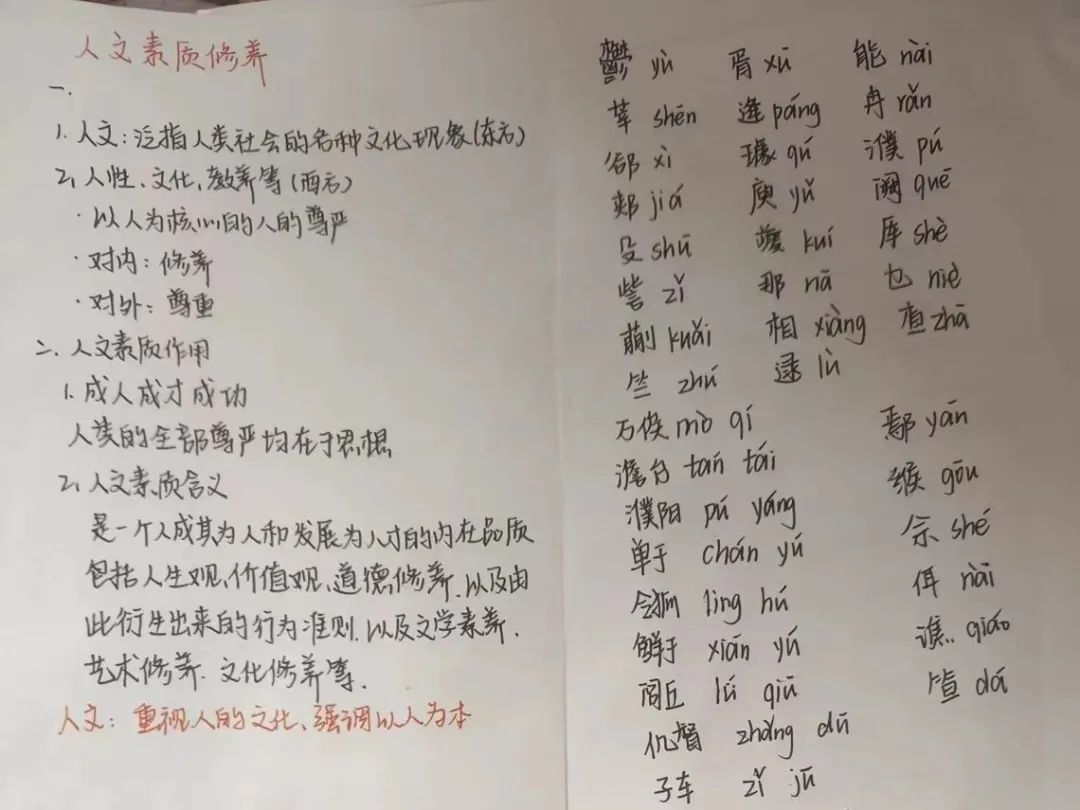 人文素质修养
一.
1. 人文：泛指人类社会的各种文化现象(东方)
2. 人性、文化、教养等(西方)
·以人为核心的人的尊严
·对内：修养
·对外：尊重
二. 人文素质作用
1. 成人成才成功
人类的全部尊严均在于思想
2. 人文素质含义
是一个人成其为人和发展为人才的内在品质
包括人生观、价值观、道德修养.以及由
此衍生出来的行为准则.以及文学素养.
艺术修养.文化修养等.
人文：重视人的文化、强调以人为本
鬱 yù 胥 xū 能 nài
莘 shēn 逄 páng 冉 rǎn
郤 xì 璩 qú 濮 pú
郏 jiá 庾 yǔ 阙 quē
殳 shū 夔 kuí 厍 shè
訾 zǐ 那 nā 乜 niè
蒯 kuǎi 相 xiàng 查 zhā
竺 zhú 逯 lù
万俟 mò qí 鄢 yān
澹台 tán tái 缑 gōu
濮阳 pú yáng 佘 shé
单于 chán yú 佴 nài
令狐 líng hú 谯.. qiáo
鲜于 xiān yú 笪 dá
闾丘 lǘ qiū
仉督 zhǎng dū
子车 zǐ jū